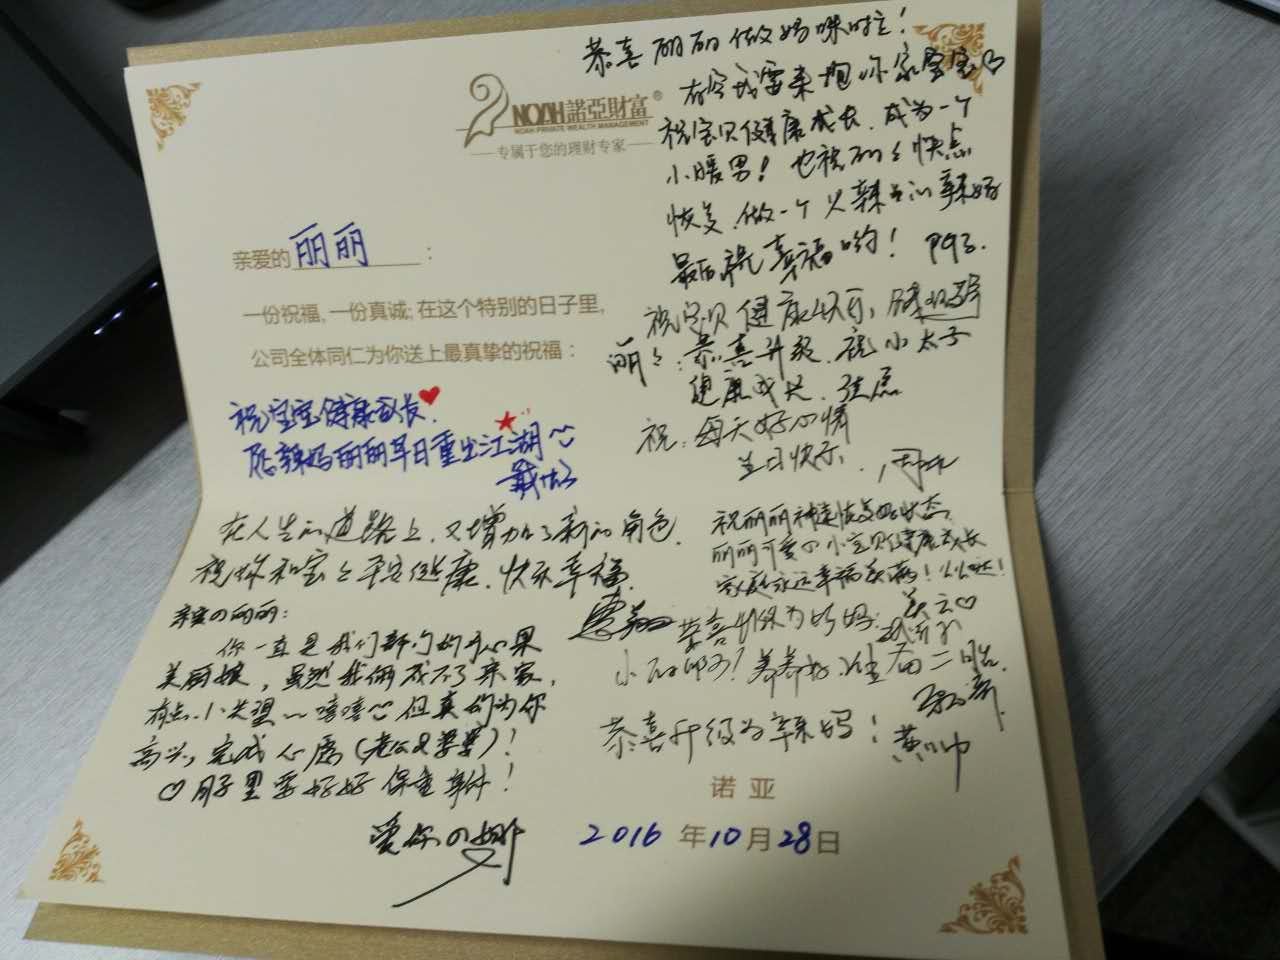 恭喜丽丽做妈咪啦！
祝宝贝健康成长，成为一个
小暖男！也祝丽丽快点
恢复，做一个火辣辣的辣妈
最后祝幸福哟！
NOAH 諾亞財富®
NOAH PRIVATE WEALTH MANAGEMENT
专属于您的理财专家
亲爱的 丽丽 ：
一份祝福，一份真诚；在这个特别的日子里，
公司全体同仁为你送上最真挚的祝福：
祝宝宝健康成长
愿辣妈丽丽早日重出江湖
祝宝贝健康快乐，
恭喜升级，祝小太子
健康成长
祝：每天好心情
生日快乐
在人生的道路上，又增加了新的角色，
祝你和宝宝平安健康，快乐幸福
祝丽丽神速恢复好状态
丽丽可爱の小宝贝健康成长
家庭永远幸福美满！
亲爱の丽丽：
你一直是我们部门的开心果
美丽娘，虽然我俩成不了亲家，
有点小失望～嘻嘻 但真的为你
高兴，完成心愿
♡月子里要好好保重身体！
爱你の娜
恭喜升级为辣妈！
诺亚
2016 年 10 月 28 日